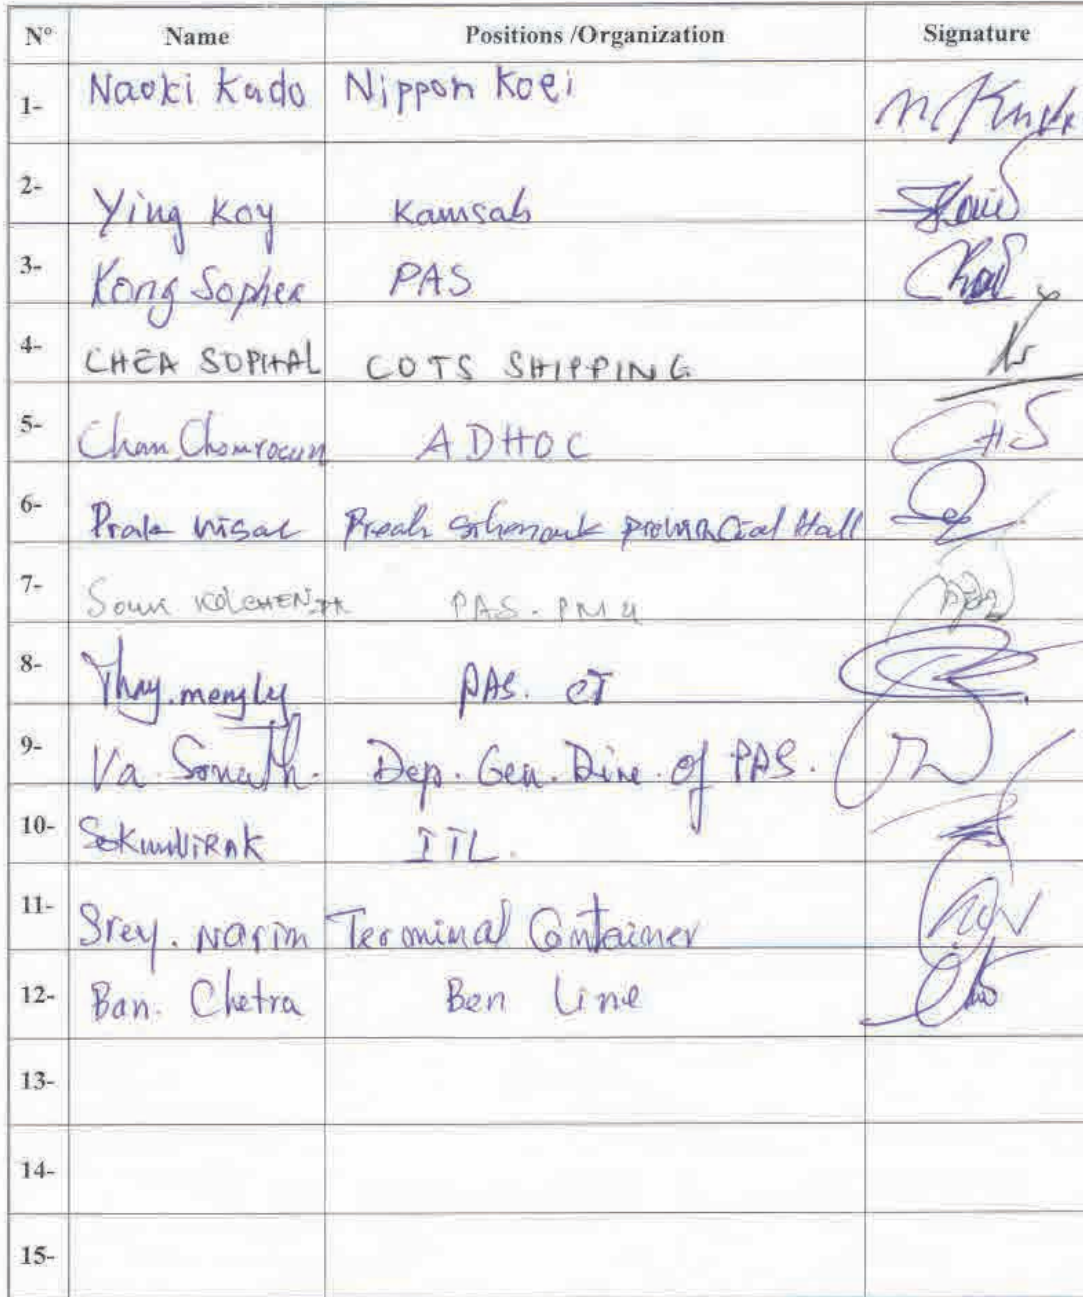 N° Name Positions /Organization Signature
1- Naoki Kudo Nippon Koei
2- Ying Koy Kamsab
3- Kong Sophea PAS
4- CHEA SOPHAL COTS SHIPPING
5- Chan ADHOC
6- Prak Visal Preah sihanouk provincial Hall
7- Soun PAS. PMU
8- Thay. mengly PAS. CT
9- Va. Sonath. Dep. Gen. Dire. of PAS.
10- SokumViRAK ITL.
11- Srey. Narin Terminal Container
12- Ban. Chetra Ben Line
13-
14-
15-